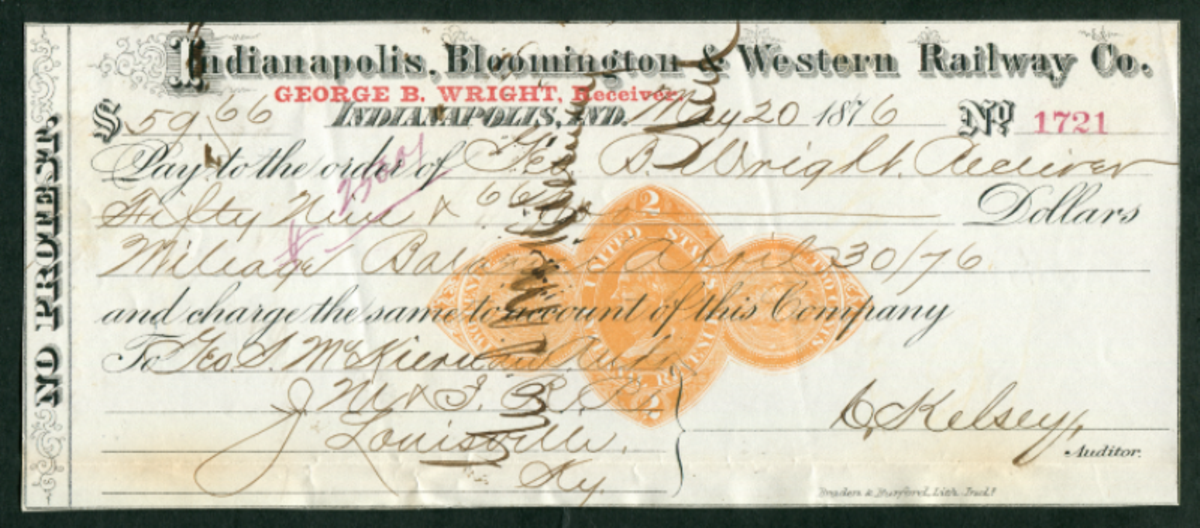 Indianapolis, Bloomington & Western Railway Co.
GEORGE B. WRIGHT, Receiver.
$ 59 66 INDIANAPOLIS, IND. May 20 1876 No. 1721
Pay to the order of Geo B. Wright. Receiver
Fifty Nine & 66 Dollars
Mileage Balance April 30/76
and charge the same to account of this Company
To Geo. S. McKiernan
J M & I. R. R.
Louisville,
Ky.
C. Kelsey,
Auditor.
NO PROTEST.
UNITED STATES
2
Braden & Burford, Lith. Ind.